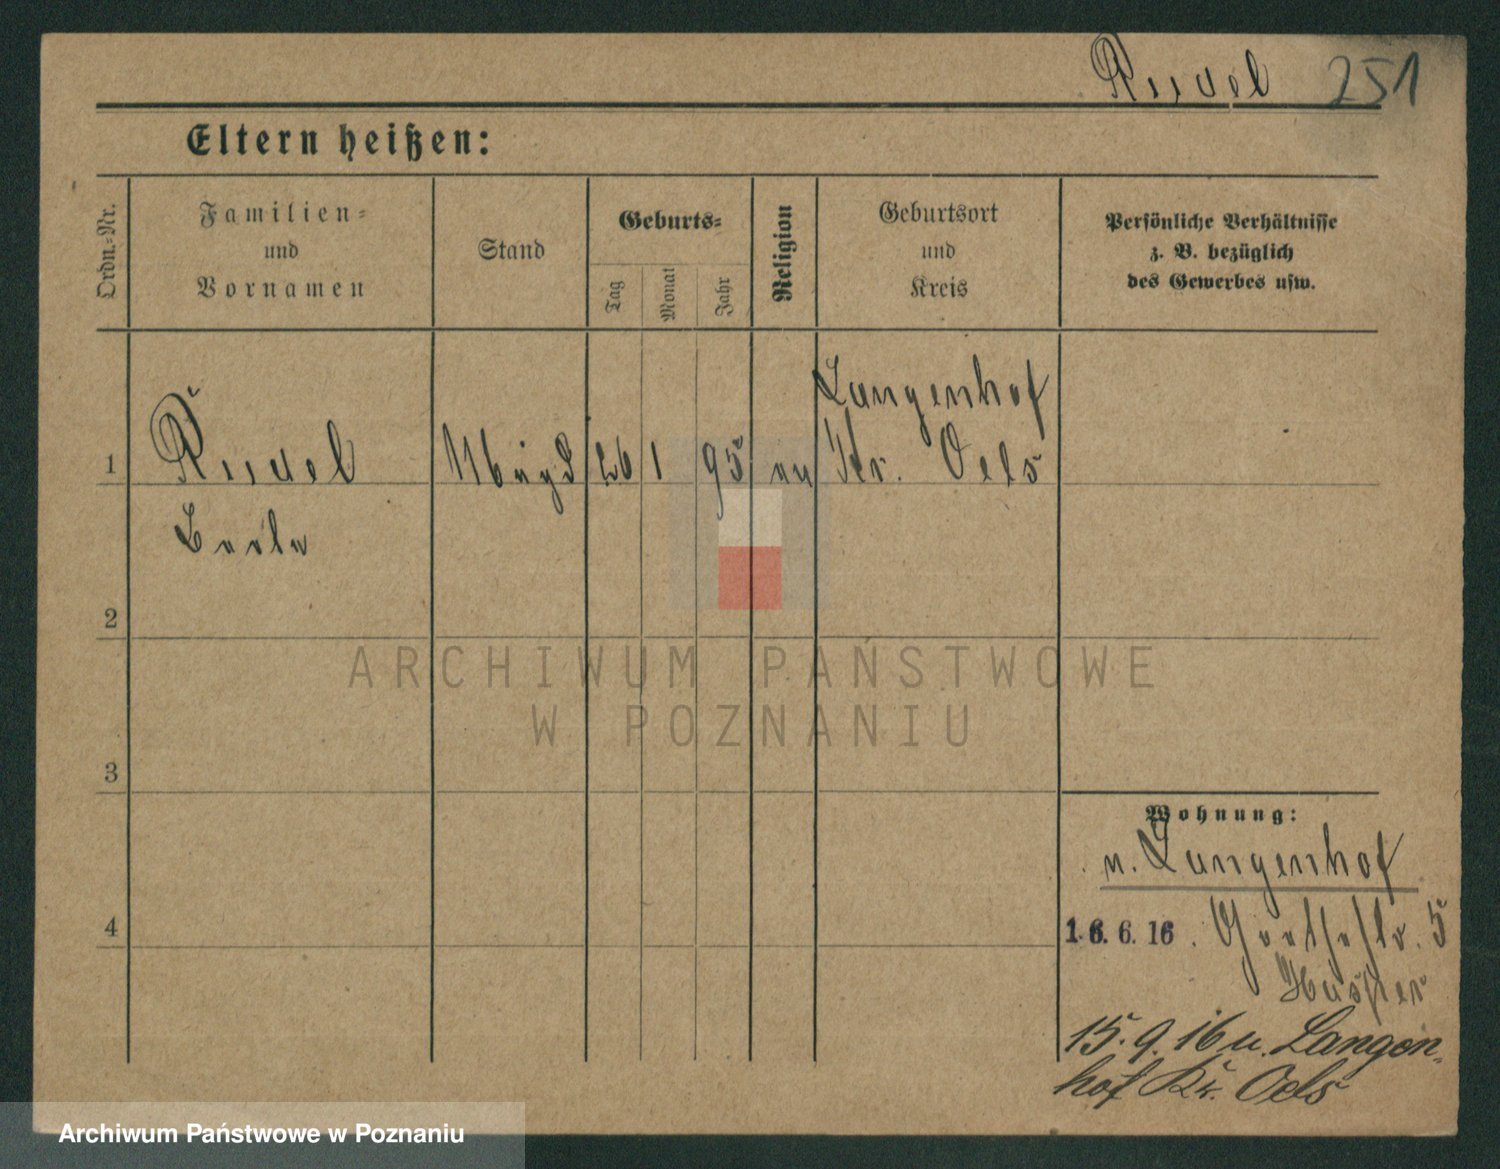 Riedel 251
Eltern heißen:
Ordn.=Nr.
Familien=
und
Vornamen
Stand
Geburts=
Tag
Monat
Jahr
Religion
Geburtsort
und
Kreis
Persönliche Verhältnisse
z. B. bezüglich
des Gewerbes usw.
Langenhof
1 Riedel Magd 26 1 95 ev Kr. Oels
2
3
4
Wohnung:
n. Langenhof
16. 6. 16. Goethestr. 5
15. 9. 16 u. Langen-
hof Kr. Oels
ARCHIWUM PAŃSTWOWE
W POZNANIU
Archiwum Państwowe w Poznaniu